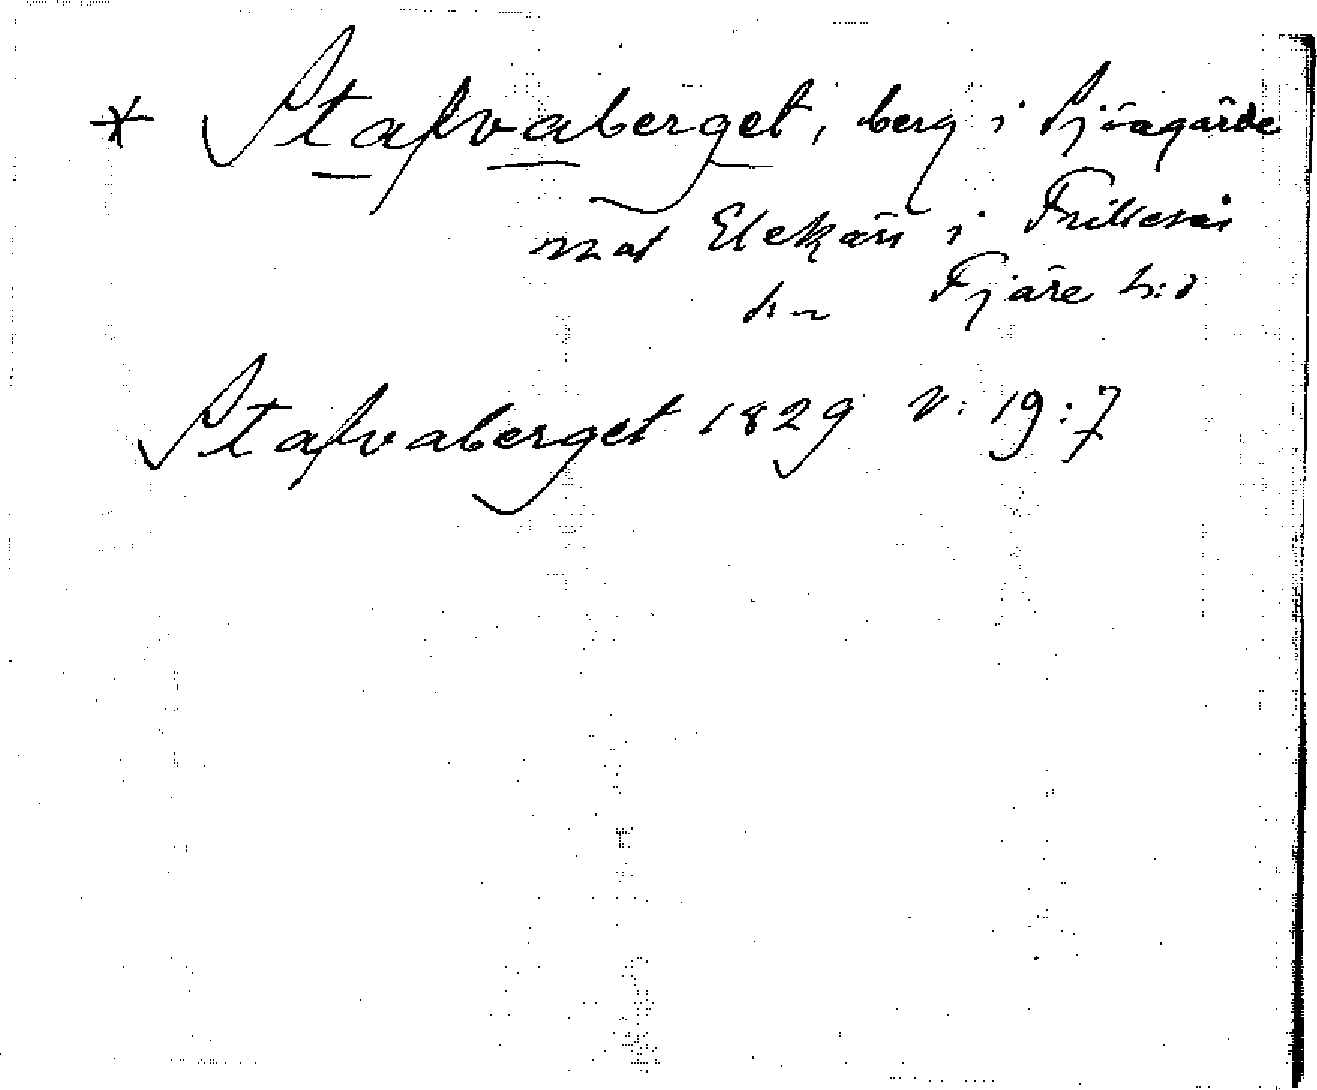 * Stafvaberget, berg i Sjöagärde
mot Elekärr i Frillesås
sn Fjäre h:d
Stafvaberget 1829 V: 19:7